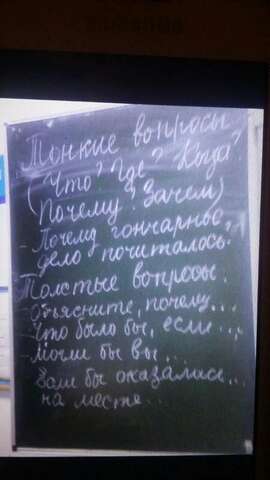 Тонкие вопросы
(Что? Где? Когда?
Почему? Зачем)
- Почему гончарное
дело почиталось.
Толстые вопросы.
- Объясните, почему...
- Что было бы, если...
- Могли бы вы...
- Если бы оказались...
на месте...